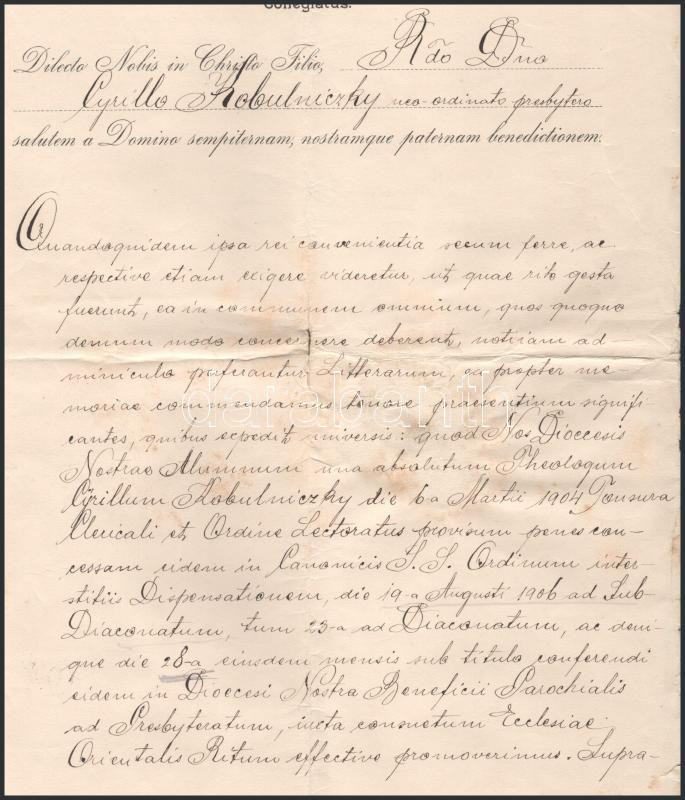 Collegiatus.
Dilecto Nobis in Christo Filio, Rdo Dno
Cyrillo Kobulniczky neo-ordinato presbytero
salutem a Domino sempiternam, nostramque paternam benedictionem.
Quandoquidem ipsa rei convenientia secum ferre, ac
respective etiam exigere videretur, ut quae rite gesta
fuerunt, ea in communem omnium, quos quoquo
demum modo concernere deberent, notitiam ad-
miniculo perferantur Litterarum, ea propter me-
moriae commendamus tenore praesentium signifi-
cantes, quibus expedit universis: quod Nos Dioecesis
Nostrae Alumnum una absolutum Theologum
Cyrillum Kobulniczky die 6a Martii 1904 Tonsura
Clericali et Ordine Lectoratus provisum penes con-
cessam eidem in Canonicis S. S. Ordinum inter-
stitiis Dispensationem, die 19-a Augusti 1906 ad Sub-
Diaconatum, tum 23-a ad Diaconatum, ac deni-
que die 28-a eiusdem mensis sub titulo conferendi
eidem in Dioecesi Nostra Beneficii Parochialis
ad Presbyteratum, iuxta consuetum Ecclesiae
Orientalis Ritum effective promoverimus. Supra-
darabanth